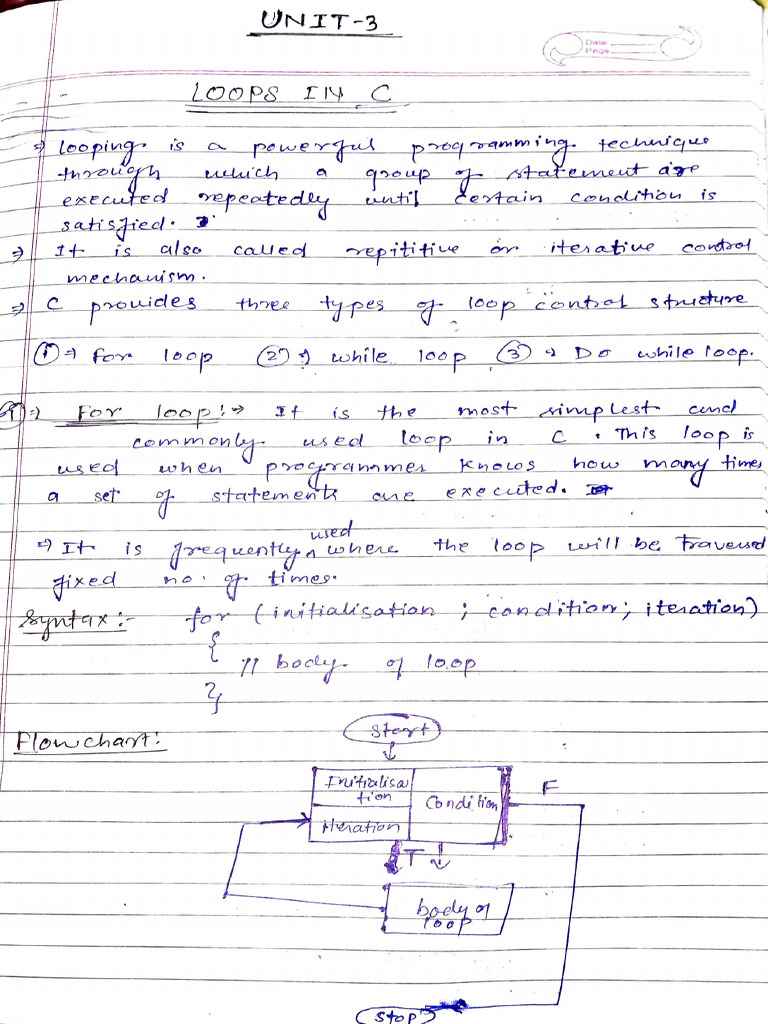 UNIT-3
Date
Page
LOOPS IN C
⇒ Looping is a powerful programming technique
through which a group of statement are
executed repeatedly until certain condition is
satisfied.
⇒ It is also called repititive or iterative control
mechanism.
⇒ C provides three types of loop control structure
① ⇒ for loop ② ⇒ while loop ③ ⇒ Do while loop.
① ⇒ For loop:→ It is the most simplest and
commonly used loop in C. This loop is
used when programmer knows how many times
a set of statements are executed.
⇒ It is frequently used where the loop will be traversed
fixed no. of times.
Syntax:- for (initialisation ; condition; iteration)
{
// body of loop
}
Flowchart:
Start
Initialisa
tion
Condition
F
iteration
T
body of
loop
Stop